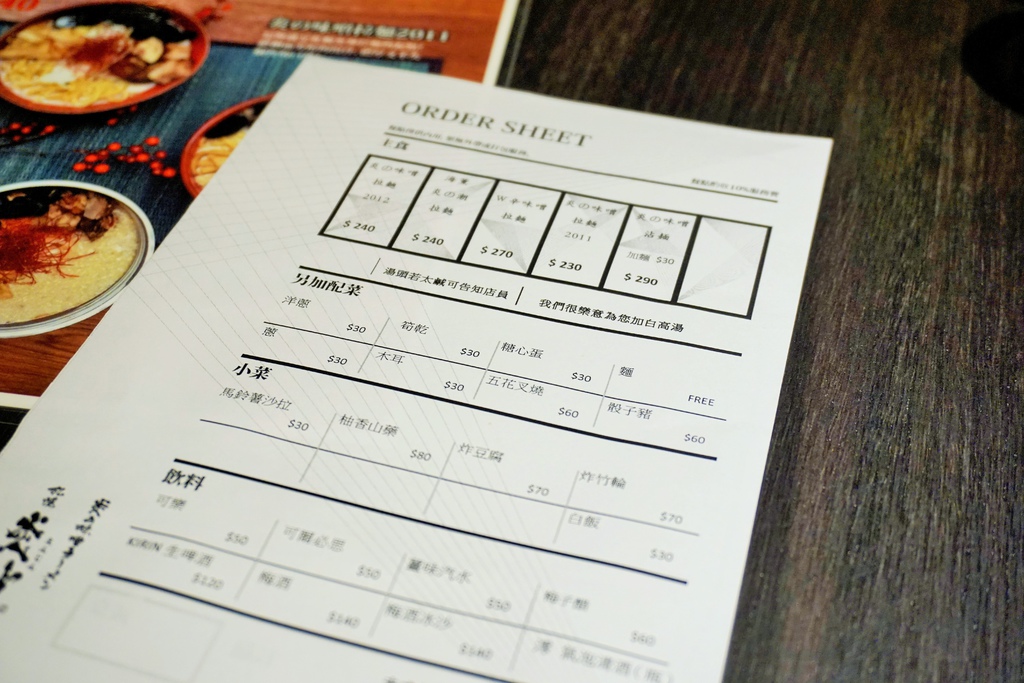 炎の味噌拉麵2011
ORDER SHEET
主食
炎の味噌拉麵2012 $240
海業炎の潮拉麵 $240
W辛味噌拉麵 $270
炎の味噌拉麵2011 $230
炎の味噌沾麵 加麵 $30 $290
湯頭若太鹹可告知店員 | 我們很樂意為您加白高湯
另加配菜
洋蔥 $30 筍乾 $30 糖心蛋 $30 麵 FREE
蔥 $30 木耳 $30 五花叉燒 $60 骰子豬 $60
小菜
馬鈴薯沙拉 $30 柚香山藥 $80 炸豆腐 $70 炸竹輪 $70
白飯 $10
飲料
可樂 $50 可爾必思 $50 薑味汽水 $50 梅子醋 $80
KIRIN 生啤酒 $120 梅酒 $140 梅酒冰沙 $140